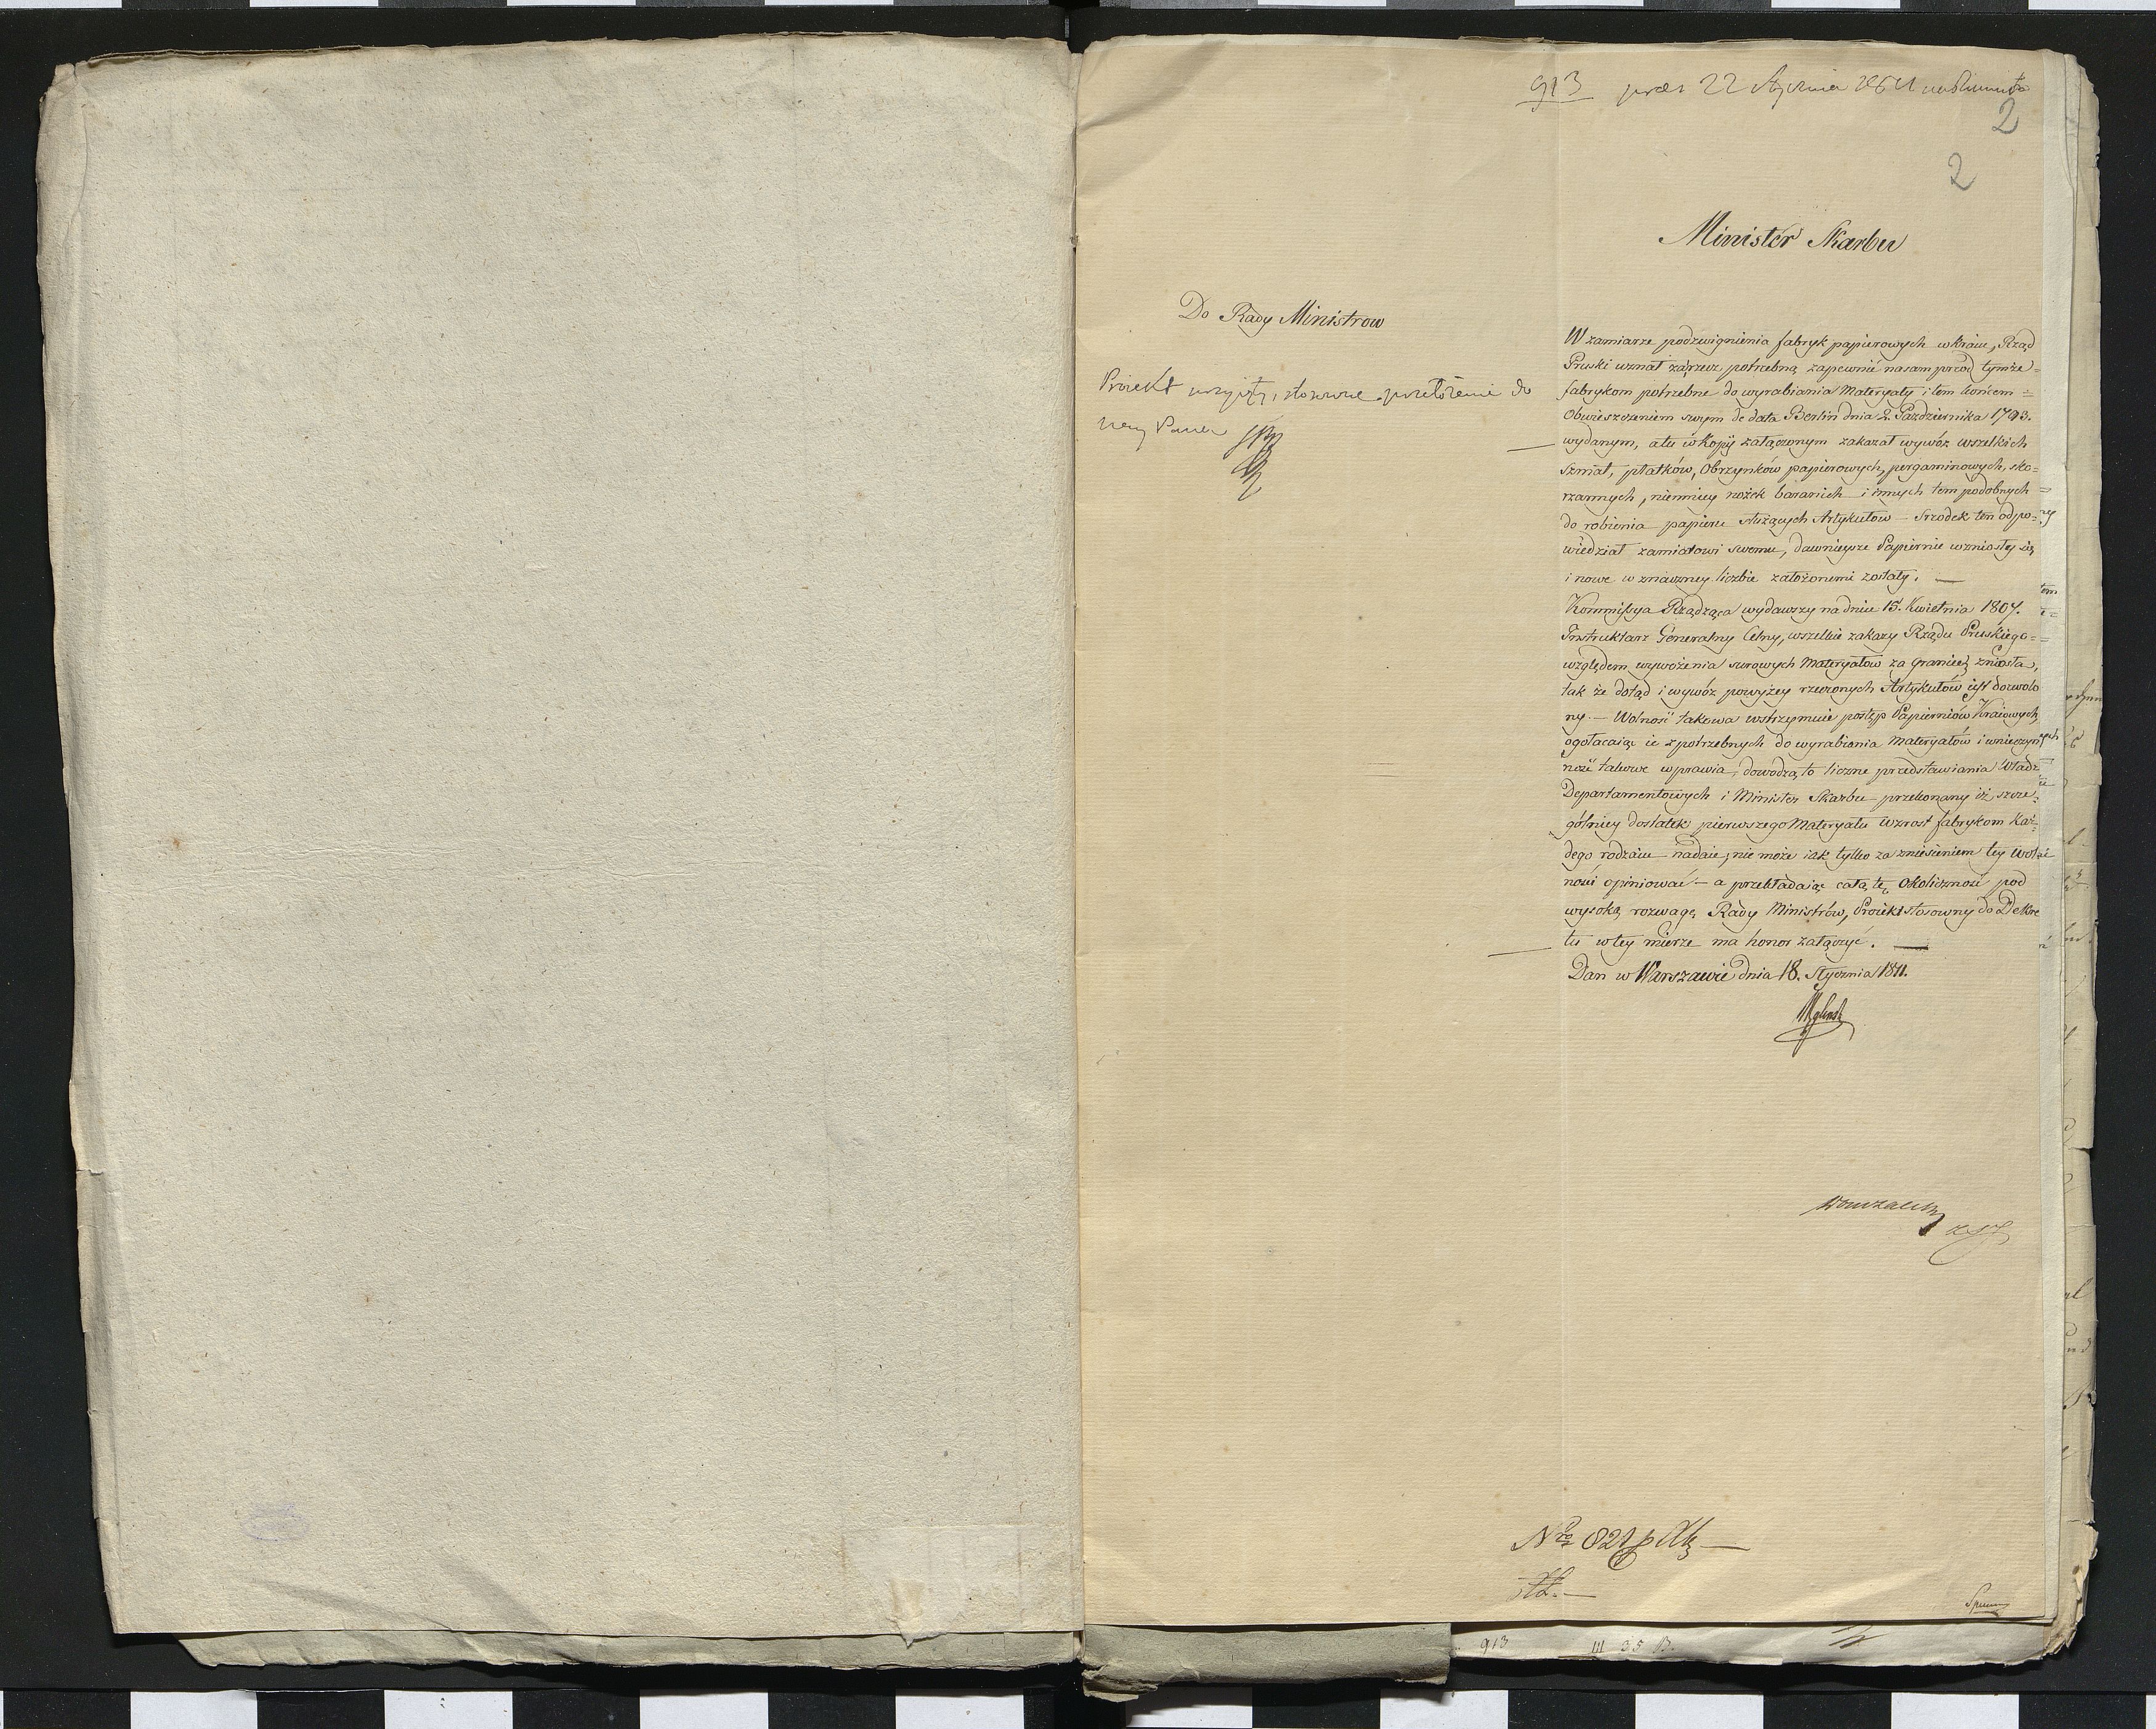 913 22 Stycznia
2
2
Minister Skarbu
Do Rady Ministrow
Proiekt do
W zamiarze podzwignienia fabryk papierowych w kraiu, Rząd
Pruski uznał zarzecz potrzebną zapewnić nasamprzod tymże=
fabrykom potrzebne do wyrabiania Materyały i tem końcem=
Obwieszczeniem swym de dato Berlin dnia 2. Października 1793.
wydanym, a tu w Kopij załączonym zakazał wywóz wszelkich
szmat, płatków, Obrzynkow papierowych, pergaminowych, sko=
rzannych, niemniey nożek baranich i innych tem podobnych=
do robienia papieru służących Artykułow — Srzodek ten odpo=
wiedział zamiarowi swemu, dawnieysze Papiernie wzniosły się,
i nowe w znaczney liczbie założonemi zostały. —
Kommissya Rządząca wydawszy na dniu 15. Kwietnia 1807.
Instruktarz Generalny Celny, wszelkie zakazy Rządu Pruskiego=
względem wywożenia surowych Materyałow za granicę zniosła,
tak że dotąd i wywóz powyżey rzeczonych Artykułów iest dozwolo
ny. — Wolność takowa wstrzymuie postęp Papierniów Kraiowych,
ogołacaiąc ie z potrzebnych do wyrabiania Materyałów i w nieczyn
ność takowe wprawia, dowodzą to liczne przedstawiania Władz
Departamentowych i Minister Skarbu przekonany iż szcze=
gólniey dostatek pierwszego Materyału wzrost fabrykom Każ=
dego rodzaiu nadaie, nie może iak tylko za zniesieniem tey wol
ności opiniować — a przekładaiąc całą tę Okoliczność pod
wysoką rozwagę Rady Ministrów, Proiekt stosowny do Dekre
tu w tey mierze ma honor załączyć. —
Dan w Warszawie dnia 18. Stycznia 1811.
Nro 821
913 III 35 B.